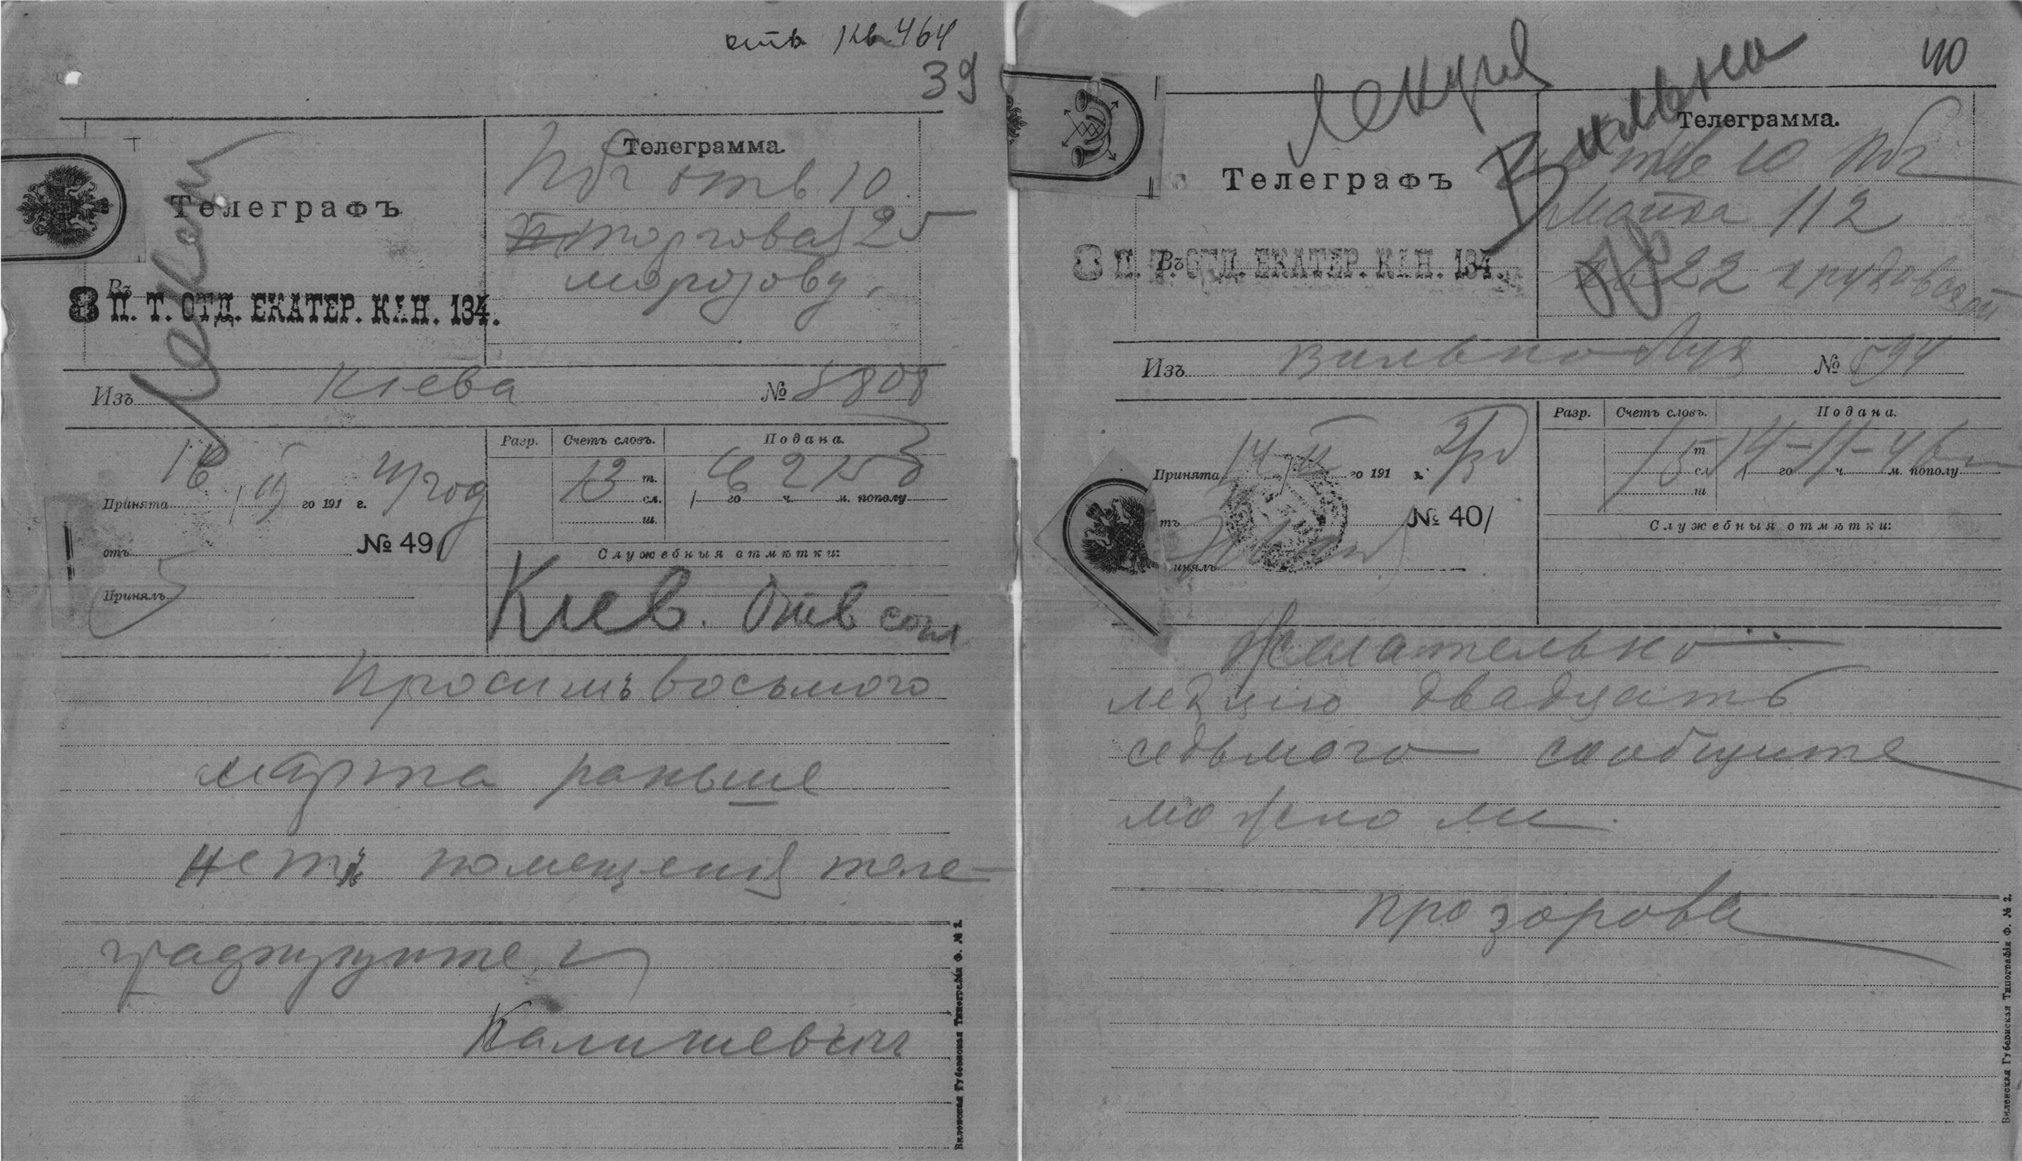 отв Кв. 464
39
Телеграмма.
Пбг отв 10
Торговая 25
Морозову.
Телеграфъ
Въ
8 П. Т. ОТД. ЕКАТЕР. КАН. 134.
Изъ Кіева № 5808
Разр. Счетъ словъ. Подана.
13 т. сл. ш.
го ч. м. пополу
16 II
Принята го 191 г.
отъ № 49
Служебныя отмѣтки:
Принялъ
Киев. Отв
Просимъ восьмого
марта раньше
нетъ помещения теле-
графируйте
Калишевич
Виленская Губернская Типографія Ф. № 2.
40
Лекция
Вильна
Телеграмма.
отв 10 Пбг
Мойка 112
22
Телеграфъ
Въ
8 П. Т. ОТД. ЕКАТЕР. КАН. 134.
Изъ Вильно № 594
Разр. Счетъ словъ. Подана.
15 т. сл. ш.
14 - 11 - 46
го ч. м. пополу
Принята 14 II го 191 г.
тъ № 40
Служебныя отмѣтки:
инялъ
Желательно
лекцию двадцать
седьмого сообщите
можно ли.
Прозорова
Виленская Губернская Типографія Ф. № 2.